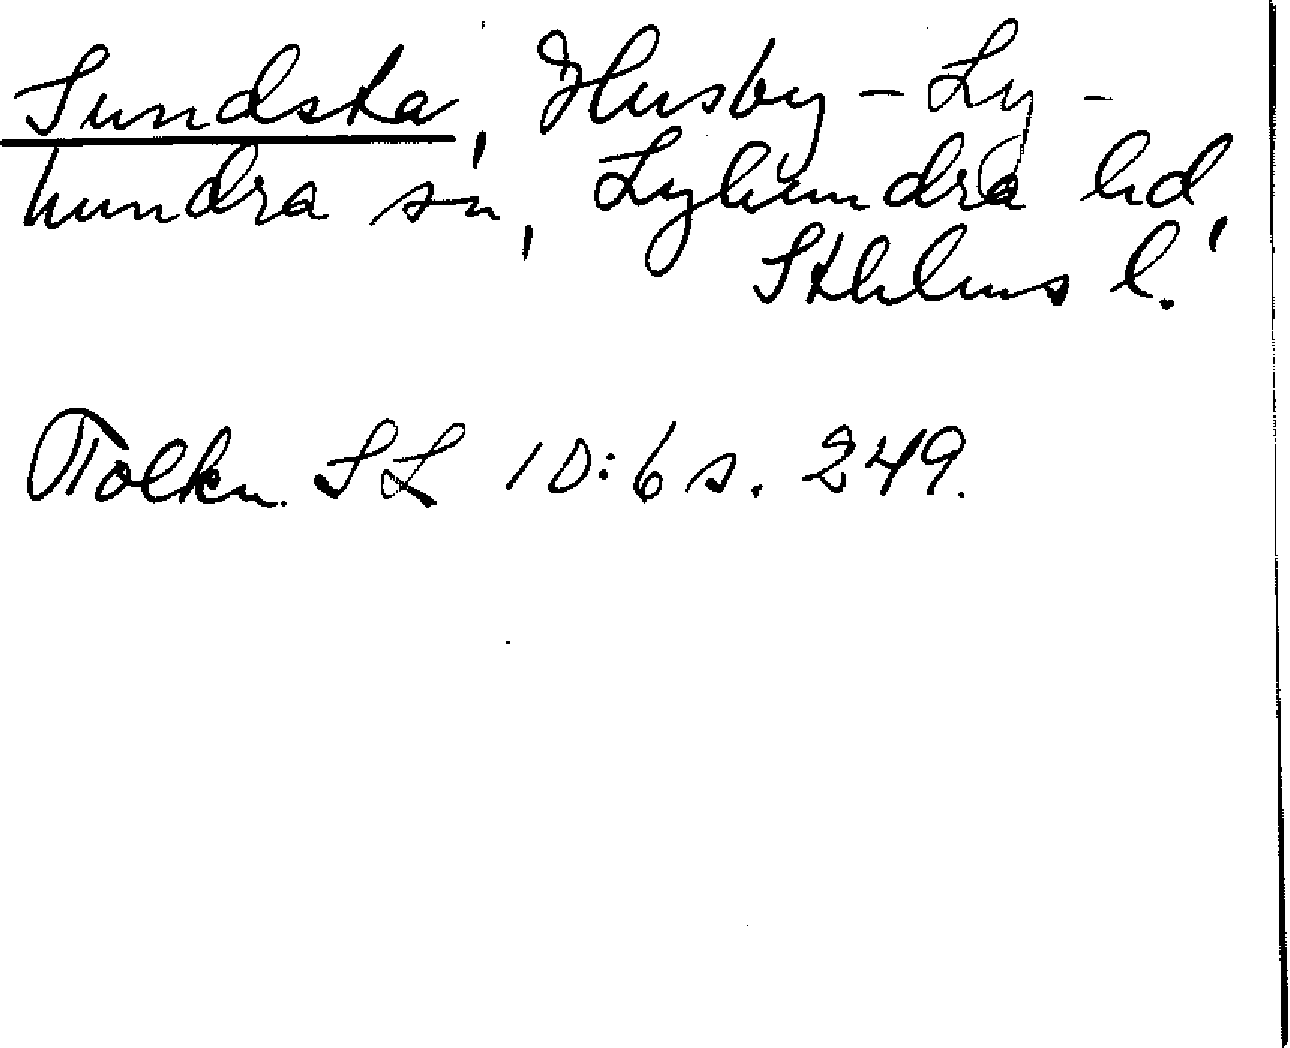 Sundska, Husby-Ly-
hundra sn, Lyhundra hd,
Sthlms l.
Tolkn. SL 10:6 s. 249.